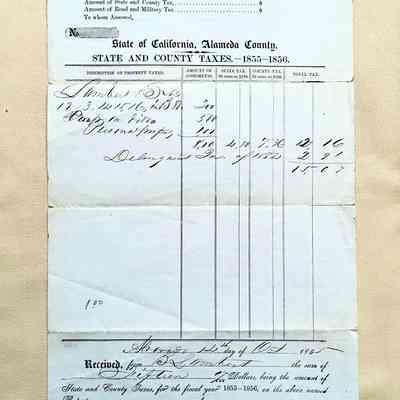 Amount of State and County Tax, $
Amount of Road and Military Tax, $
To whom Assessed,
No.
State of California, Alameda County.
STATE AND COUNTY TAXES.—1855–1856.
DESCRIPTION OF PROPERTY TAXED. AMOUNT OF ASSESSMENT. STATE TAX. COUNTY TAX. TOTAL TAX.
Lambert
12, 3, 14, 15, 16, 200
500
Personal property 100
800 4.80 7.36 12 16
Delinquent Tax of 1854 2 91
15 07
1 00
day of Oct 1855
Received, from Lambert the sum of
Fifteen Dollars, being the amount of
State and County Taxes, for the fiscal year 1855–1856, on the above named